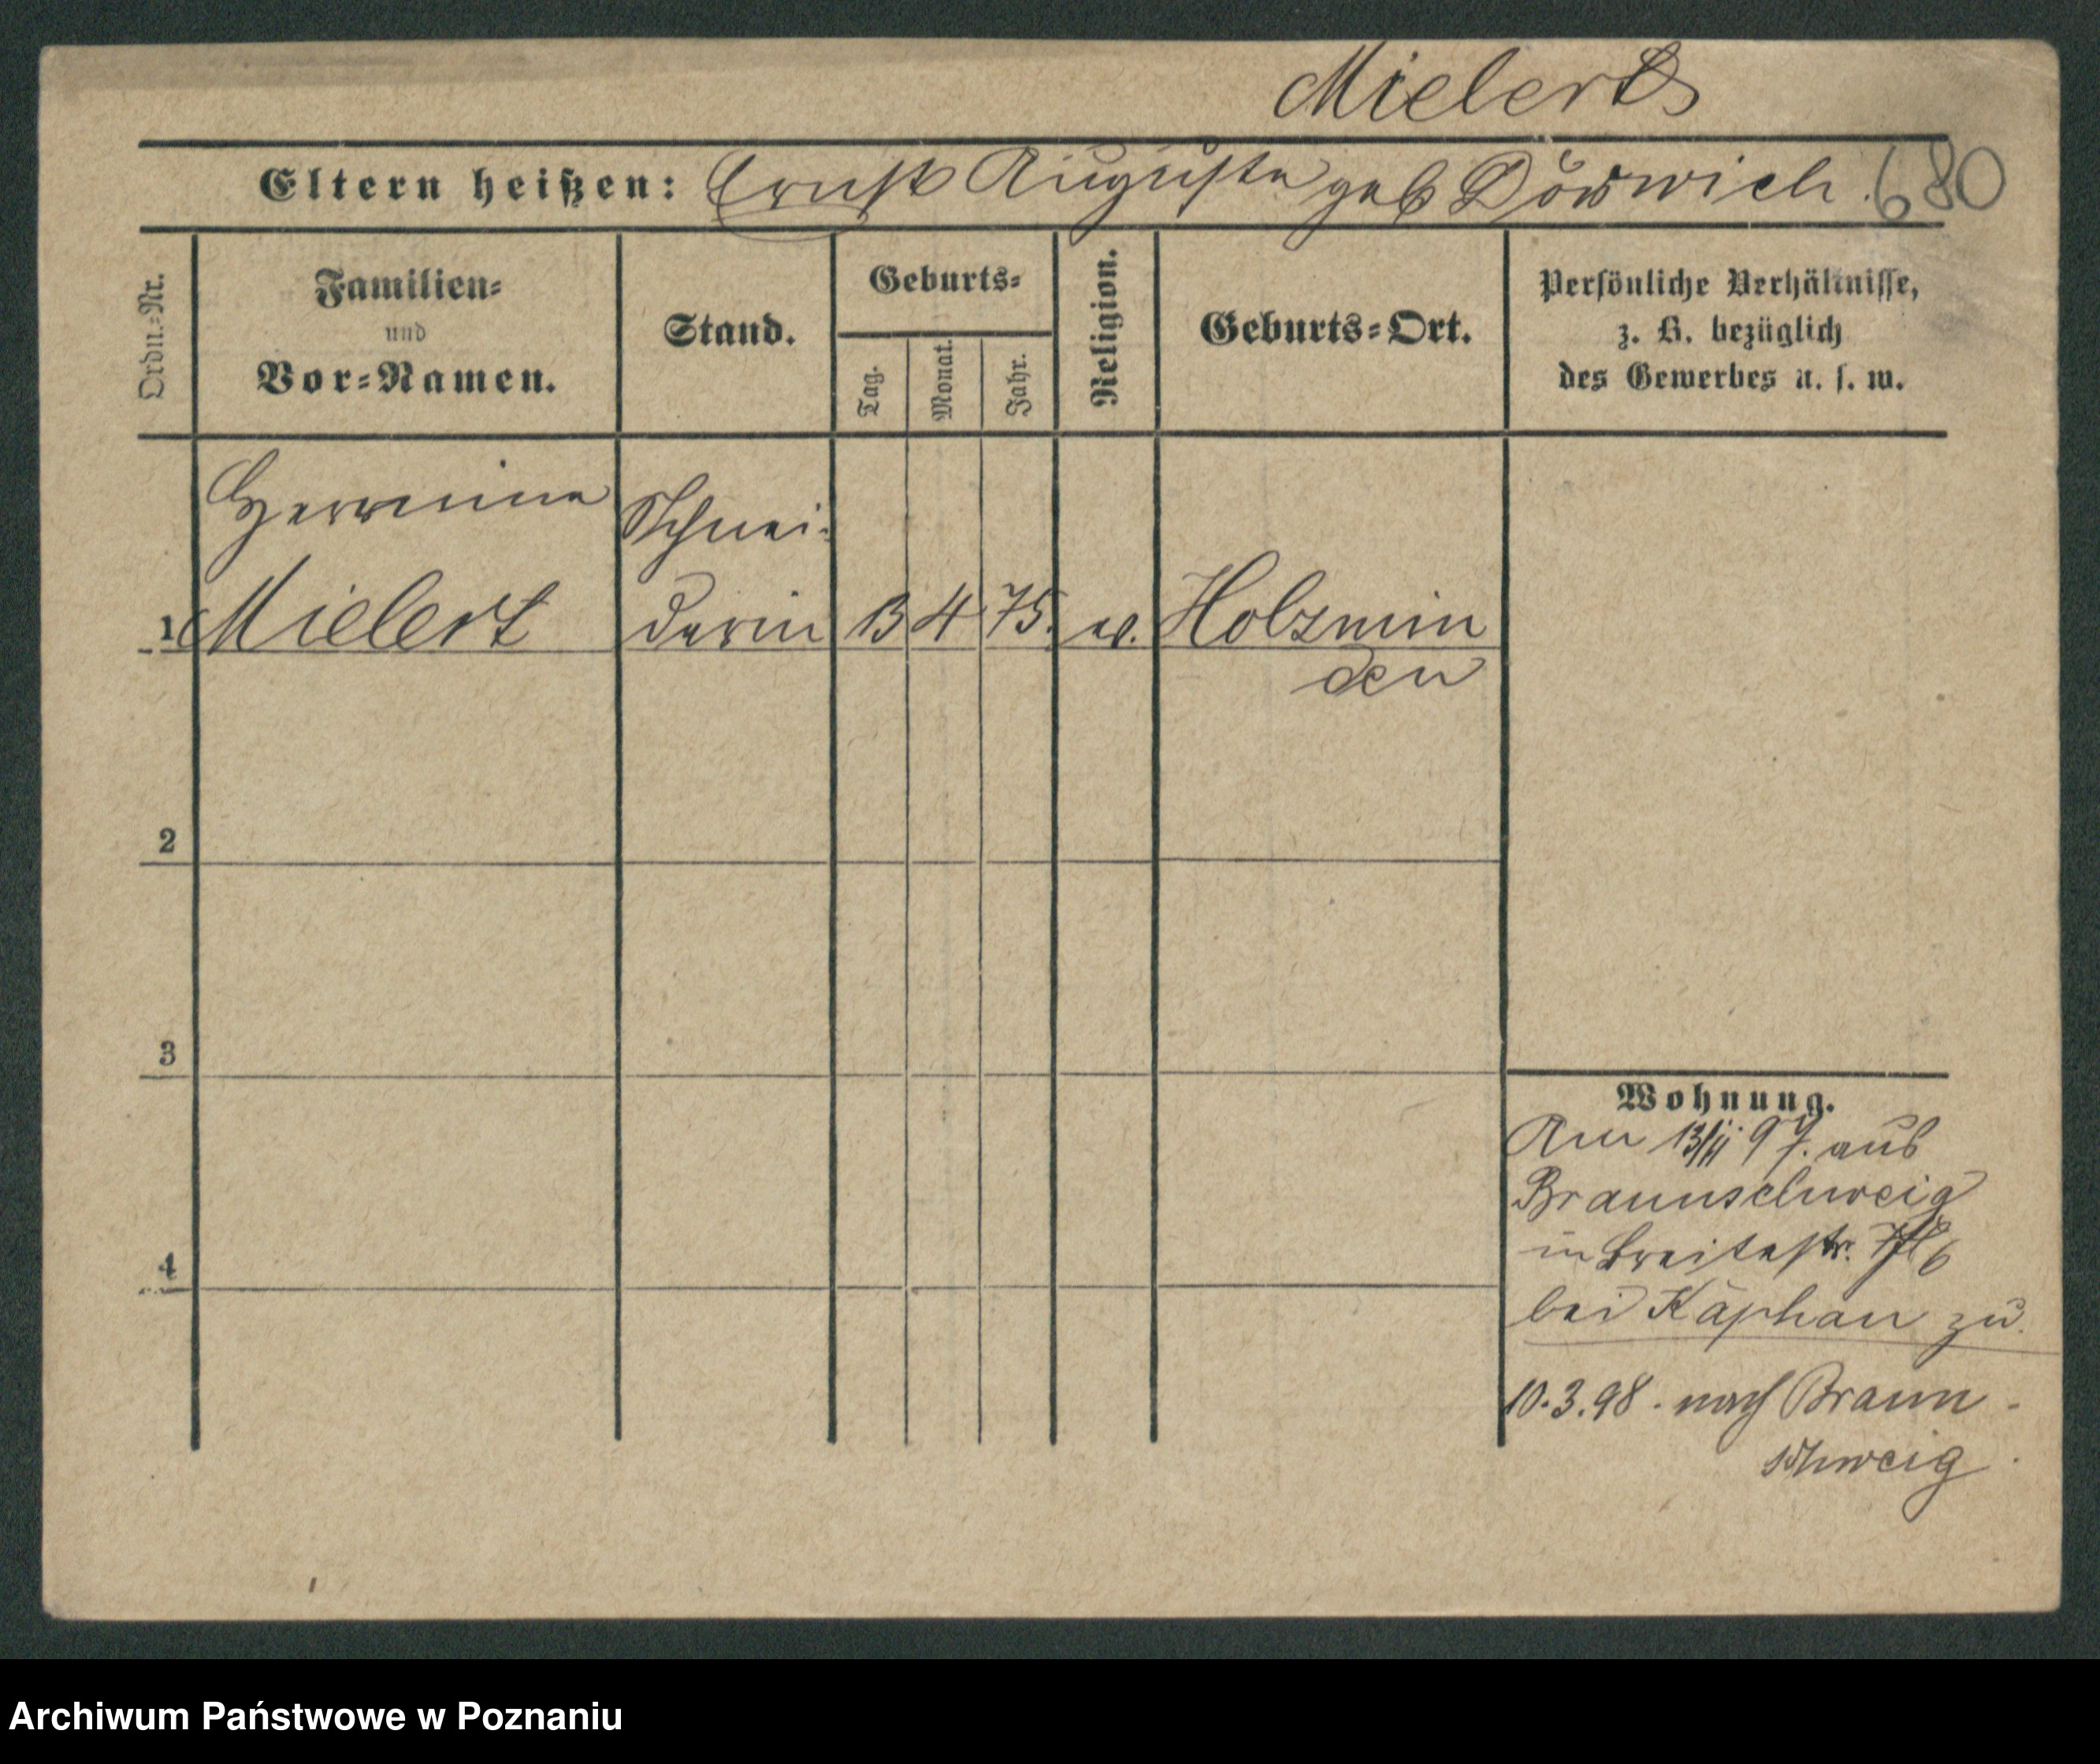 Mielert
Eltern heißen: Ernst Auguste geb Dörwich. 680
Ordn.-Nr.
Familien-
und
Vor-Namen.
Stand.
Geburts-
Tag.
Monat.
Jahr.
Religion.
Geburts-Ort.
Persönliche Verhältnisse,
z. B. bezüglich
des Gewerbes u. s. w.
Hermine Schnei-
1 Mielert derin 13 4 75. ev. Holzmin
den
2
3
4
Wohnung.
Am 13/11 97. aus
Braunschweig
in Breitestr.
bei Käphan zu.
10.3.98. nach Braun-
schweig.
Archiwum Państwowe w Poznaniu